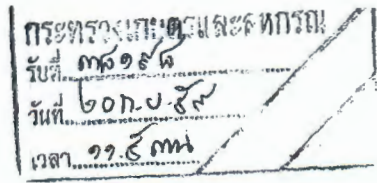 กระทรวงเกษตรและสหกรณ์
รับที่ ๓๘๑๙๘
วันที่ ๒๐ ก.ย. ๕๙
เวลา ๑๑.๕